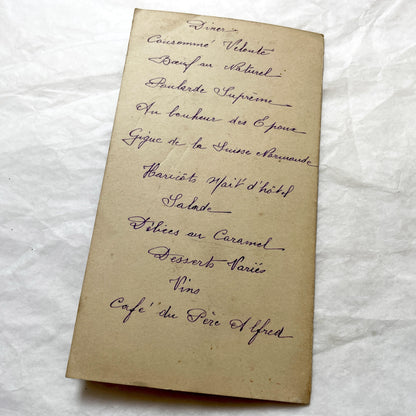 Dîner
Consommé Velouté
Bœuf au Naturel
Poularde Suprême
Au bonheur des Epoux
Gigue de la Suisse Normande
Haricôts Mait' d'hôtel
Salade
Délices au Caramel
Desserts Variés
Vins
Café du Père Alfred